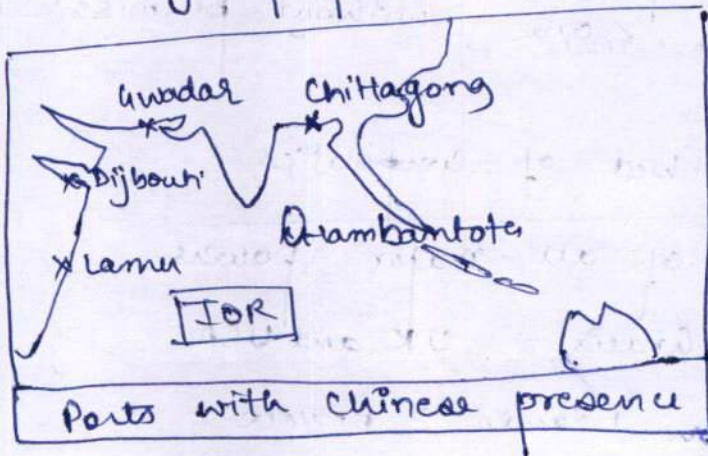 Gwadar
Chittagong
Djibouti
Hambantota
Lamu
IOR
Ports with Chinese presence